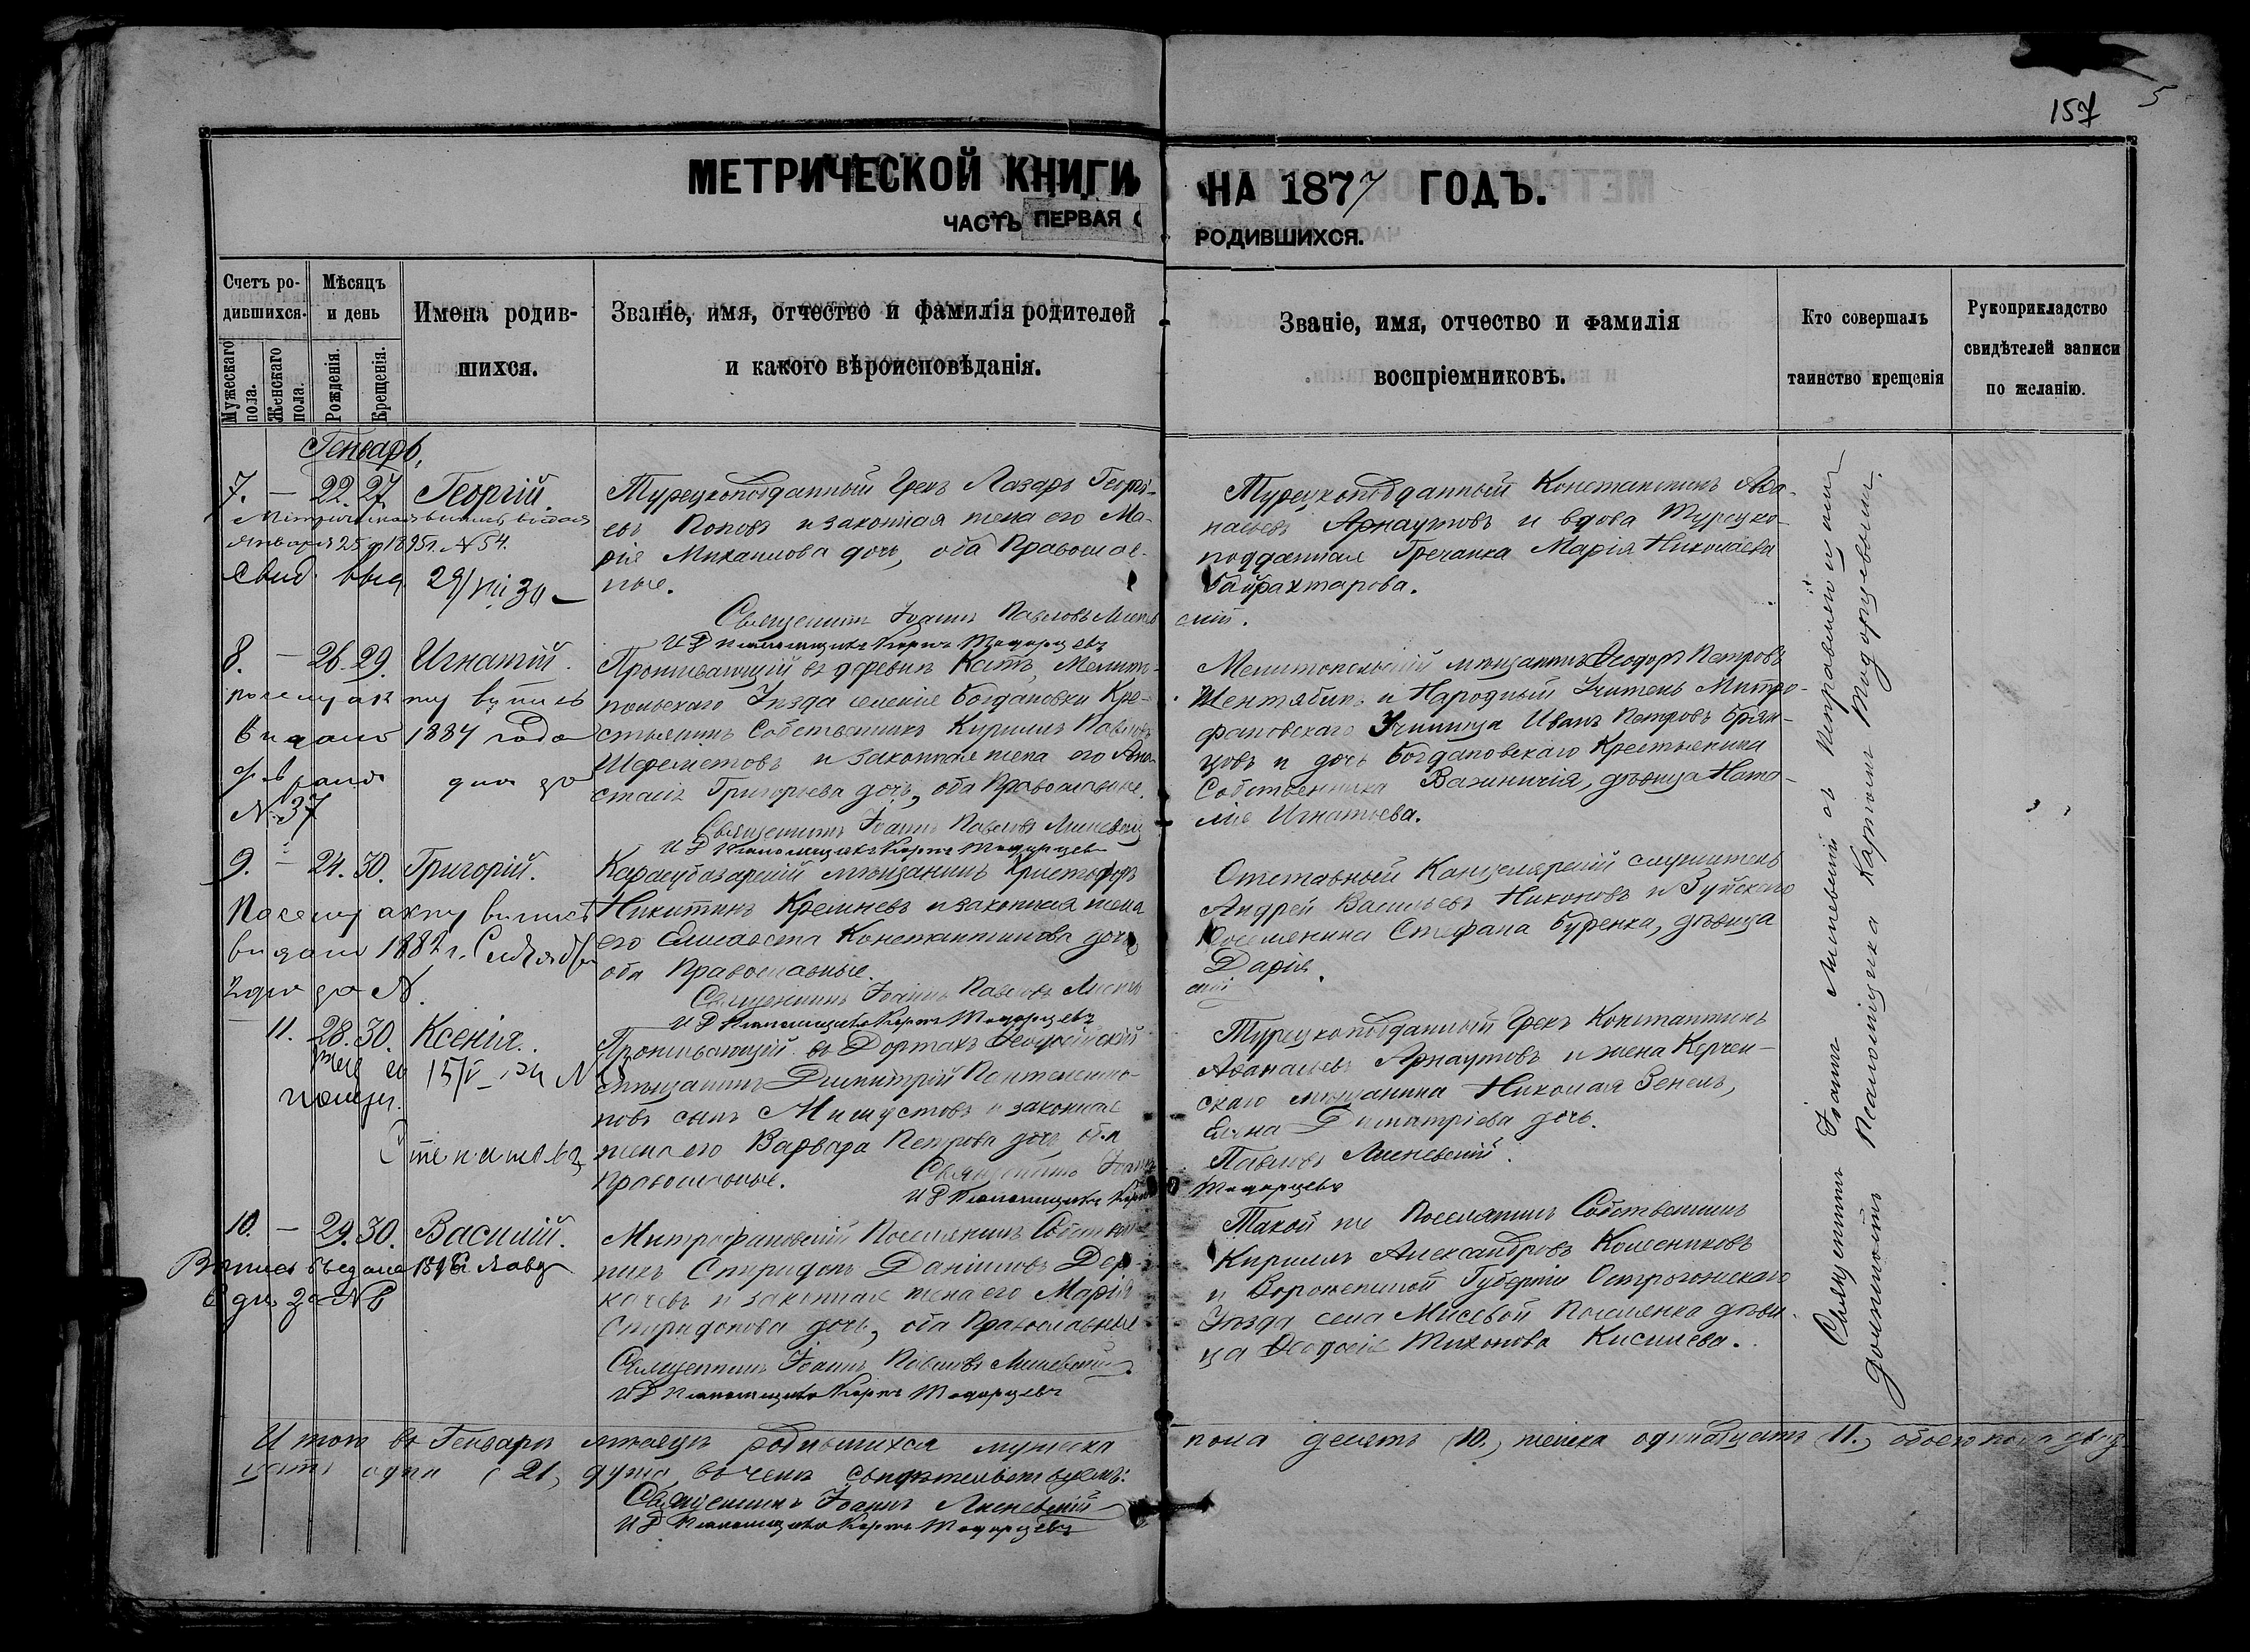 157
5
МЕТРИЧЕСКОЙ КНИГИ НА 1877 ГОДЪ.
ЧАСТЬ ПЕРВАЯ О РОДИВШИХСЯ.
Счетъ ро-
дившихся.
Мужескаго пола.
Женскаго пола.
Мѣсяцъ
и день
Рожденія.
Крещенія.
Имена родив-
шихся.
Званіе, имя, отчество и фамилія родителей
и какого вѣроисповѣданія.
Званіе, имя, отчество и фамилія
воспріемниковъ.
Кто совершалъ
таинство крещенія
Рукоприкладство
свидѣтелей записи
по желанію.
Генварь,
7. — 22. 27. Георгій.
Января 25 д. 1895 г. N 54.
Турецкоподданный Грекъ Лазарь Георгі-
евъ Поповъ и законная жена его Ма-
рія Михаилова дочь, оба Православ-
ные.
Священникъ Іоаннъ Павловъ Лисневскій.
И Д Псаломщика Карпъ Тодорцевъ
Турецкоподданный Константинъ Аѳа-
насьевъ Арнаутовъ и вдова Турецко-
подданная Гречанка Марія Николаева
Байрахтарова.
8. — 26. 29. Игнатій.
по сему акту выпись
выдано 1884 года
N. 37
Проживающій въ деревнѣ Катъ, Мелито-
польскаго Уѣзда селенія Богдановки Кре-
стьянинъ Собственникъ Кириллъ Павловъ
Шереметовъ и законная жена его Ана-
стасія Григорьева дочь, оба Православные.
Священникъ Іоаннъ Павловъ Лисневскій
И Д Псаломщика Карпъ Тодорцевъ
Мелитопольскій мѣщанинъ Ѳеодоръ Петровъ
и Народный Учитель Митро-
фановскаго Училища Иванъ Петровъ Брян-
цовъ и дочь Богдановскаго Крестьянина
Собственника дѣвица Ната-
лія Игнатьева.
9. — 24. 30. Григорій.
По сему акту выпись
выдано 1882 г. Сентября
2 дня за N.
Карасубазарскій мѣщанинъ Христофоръ
Никитинъ Кремневъ и законная жена
его Елисавета Константинова дочь
оба Православные.
Священникъ Іоаннъ Павловъ Лиснев
скій
И Д Псаломщика Карпъ Тодорцевъ
Отставный Канцелярскій служитель
Андрей Васильевъ Никоновъ и Зуйскаго
Поселянина Стефана Буренка, дѣвица
Дарія.
11. 28. 30. Ксенія.
Проживающій въ Дортахъ Ѳеодосійскій
мѣщанинъ Димитрій Пантелеимо-
новъ сынъ Мимустовъ и законная
жена его Варвара Петрова дочь, оба
Православные. Священникъ Іоаннъ Павловъ Лисневскій.
И Д Псаломщика Карпъ Тодорцевъ
Турецкоподданный Грекъ Константинъ
Аѳанасьевъ Арнаутовъ и жена Керчен-
скаго мѣщанина Николая Зенель,
Елена Димитріева дочь.
10. — 29. 30. Василій.
Митрофановскій Поселянинъ Собствен-
никъ Спиридонъ Даніиловъ Дер-
качевъ и законная жена его Марія
Спиридонова дочь, оба Православные
Священникъ Іоаннъ Павловъ Лисневскій.
И Д Псаломщика Карпъ Тодорцевъ
Такой же Поселянинъ Собственникъ
Кириллъ Александровъ Колесниковъ
и Воронежской Губерніи Острогожскаго
Уѣзда села Поселянка дѣви-
ца Ѳеодосія Тихонова Киселева.
Священникъ Іоаннъ Лисневскій съ исправляющимъ
должность Псаломщика Карпомъ Тодорцевымъ.
Итого въ Генварѣ мѣсяцѣ родившихся мужеска пола десять (10.) женска одинадцать (11.) обоего пола двад-
цать одна (21) душа, въ чемъ свидѣтельствуемъ:
Священникъ Іоаннъ Лисневскій
И Д Псаломщика Карпъ Тодорцевъ